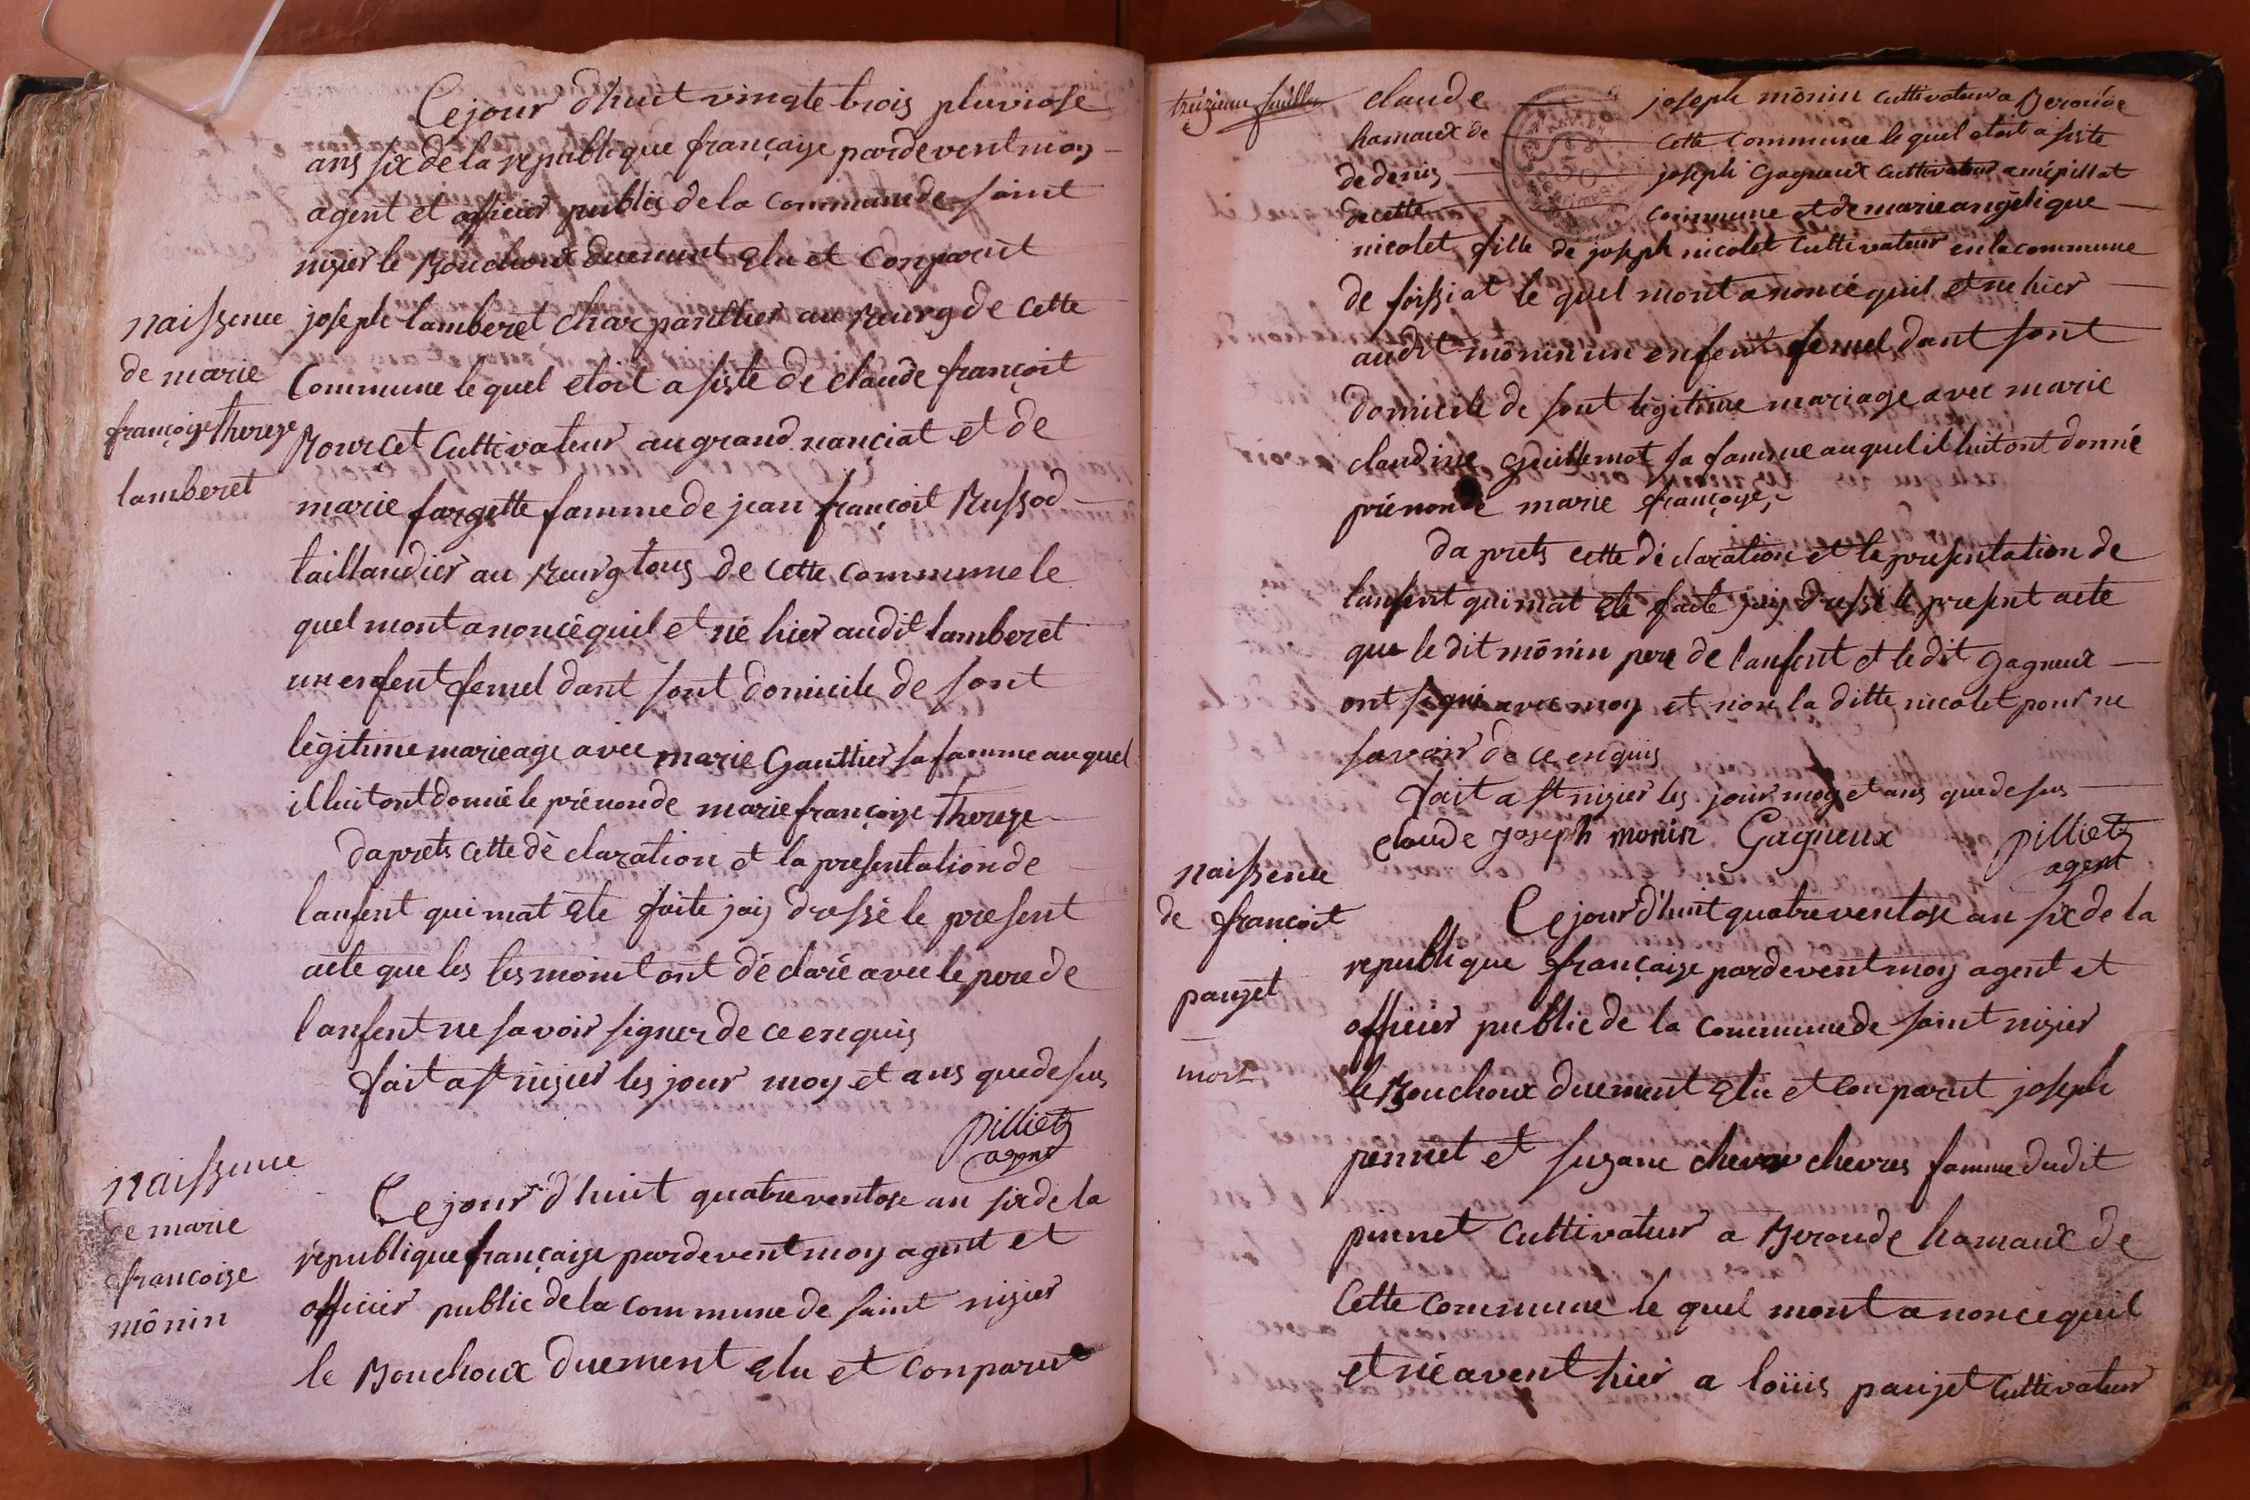 Ce jour d'huit vingte trois pluviose
ans six de la republique française pardevent moy
agent et officier publics de la commune de saint
nizier le Bouchoux duement elu et conparut
naissence
de marie
françoize thereze
lamberet
joseph lamberet charpanttier au Bourg de cette
Commune le quel etoit a siste de claude françoit
Bourcet Cultivateur au grand nanciat et de
marie fargette famme de jean françoit Bussod
taillandier au Bourg tous de cette commune le
quel mont anoncé quil et né hier audit lamberet
un enfent femel dant sont domicile de sont
légitime marieage avec marie Gauttier sa famme auquel
il luit ont donné le prénon de marie françoize thereze
daprets cette dé claration et la presentation de
lanfent qui mat ete faite jaij dressé le present
acte que les tesmoint ont dé claré avec le pere de
lanfent ne savoir signer de ce enquis
fait a st nizier les jour moy et ans que desus
Pilliet
agent
naissence
de marie
francoize
mônin
Ce jour d'huit quatre ventose an six de la
république française pardevent moy agent et
officier public de la commune de saint nizier
le Bouchoux duement elu et conparut
treizieme feuille
claude joseph mônin cultivateur a Beroude
hamaux de cette commune le quel etoit a siste
de denis joseph Gagneux cultivateur a mépillat
de cette commune et de marie angélique
nicolet fille de joseph nicolet cultivateur en la commune
de foissiat le quel mont anoncé quil et ne hier
audit mônin un enfent femel dant sont
domicile de sont légitime mariage avec marie
claudine Guillemot sa famme auquel il luit ont donné
prénon de marie françoize
da prets cette dé claration et la presentation de
lanfent qui mat ete faite jaij dressé le present acte
que le dit mônin pere de lanfent et le dit Gagneux
ont signé avec moy et non la ditte nicolet pour ne
savoir de ce enquis
fait a st nizier les jour moy et ans que desus
claude joseph monin Gagneux Pilliet
agent
naissence
de françoit
paujet
mort
Ce jour d'huit quatre ventose an six de la
republique française pardevent moy agent et
officier public de la commune de saint nizier
le Bouchoux duement elu et conparut joseph
pennet et suzane chevres famme dudit
pennet cultivateur a Beroude hamaux de
cette commune le quel mont anoncé quil
et né avent hier a loüis paujet cultivateur